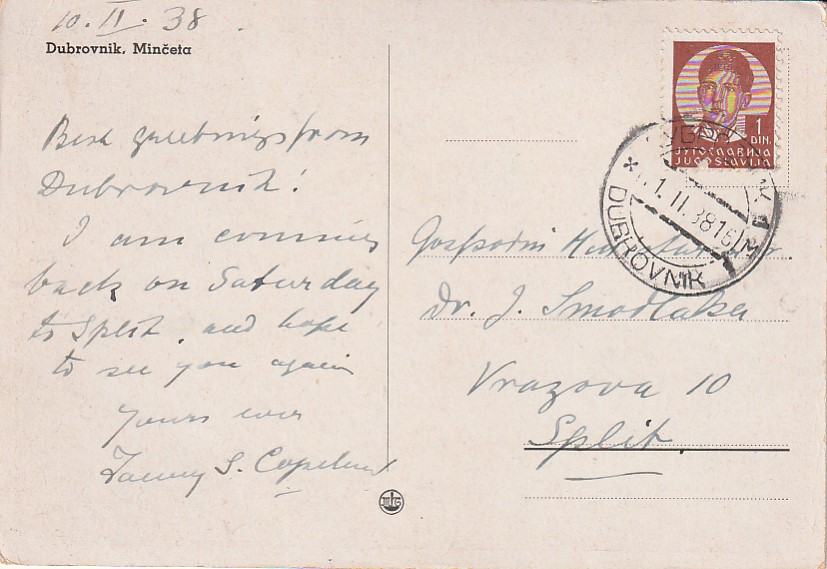 10. II. 38.
Dubrovnik, Minčeta
Best greetings from
Dubrovnik!
I am coming
back on Saturday
to Split, and hope
to see you again
Yours ever
Fanny S. Copeland
1
DIN.
ЈУГОСЛАВИЈА
JUGOSLAVIJA
1. II. 38 16
DUBROVNIK
Gospodin
Dr. J. Smodlaka
Vrazova 10
Split